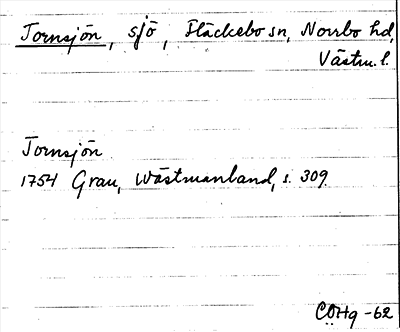 Tornsjön, sjö, Fläckebo sn, Norrbo hd,
Västm. l.
Tornsjön
1754 Grau, Wästmanland, s. 309.
CÖHg -62